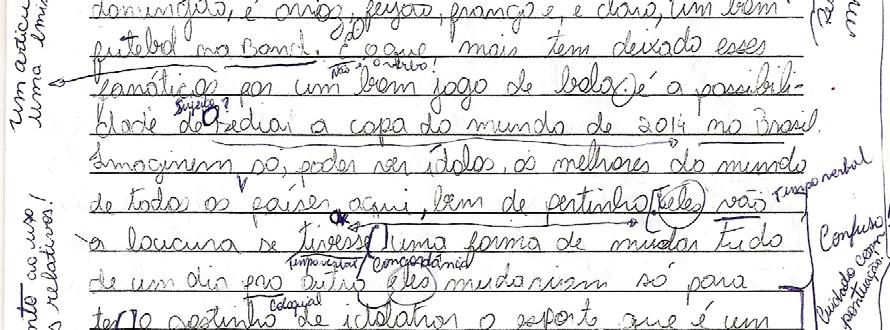 domingão, é arroz, feijão, frango e, e claro, um bom
futebol na Band. E o que mais tem deixado esses
Não é o verbo!
fanáticos por um bom jogo de bola, é a possibili-
Sujeito?
dade do sediar a copa do mundo de 2014 no Brasil.
Imaginem só, poder ver ídolos, os melhores do mundo
de todos os países aqui, bem de pertinho, eles vão
Tempo verbal
a loucura se tivesse uma forma de mudar tudo
Tempo verbal Concordância
de um dia pro outro eles mudariam só para
Coloquial
ter o gostinho de idolatrar o esporte que é um
Um articu
uma
ao uso
relativos!
Confuso
Cuidado com a
pontuação